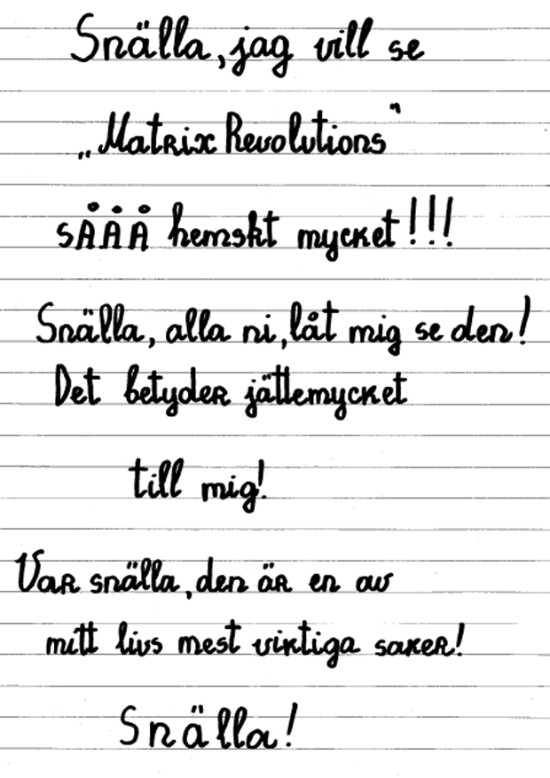 Snälla, jag vill se
„Matrix Revolutions”
sÅÅÅ hemskt mycket!!!
Snälla, alla ni, låt mig se den!
Det betyder jättemycket
till mig!
Var snälla, den är en av
mitt livs mest viktiga saker!
Snälla!